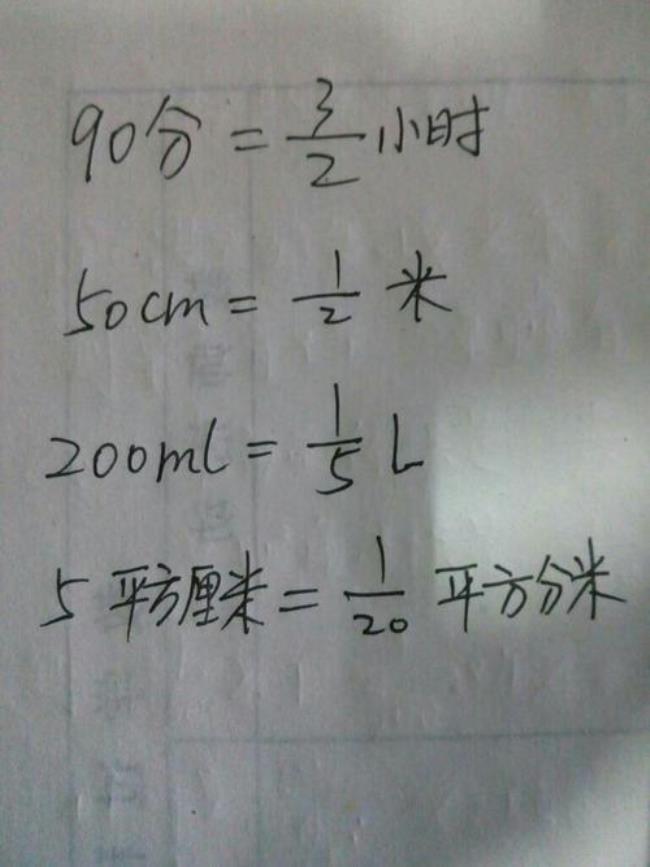 90分=3/2小时
50cm=1/2米
200ml=1/5L
5平方厘米=1/20平方分米